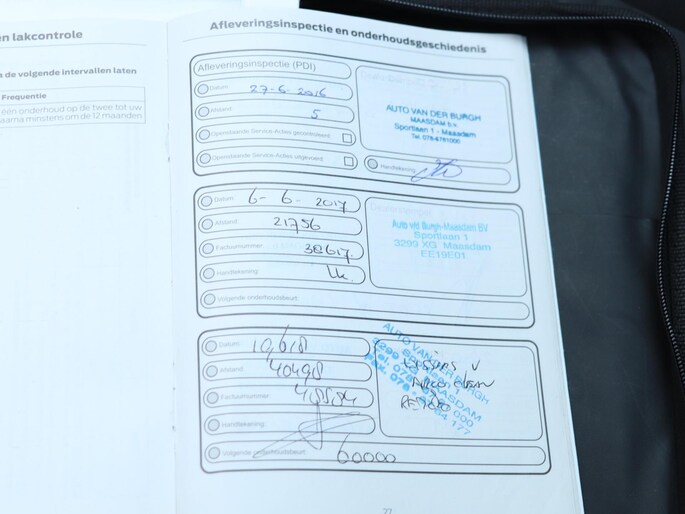 en lakcontrole
a de volgende intervallen laten
Frequentie
één onderhoud op de twee tot uw
aarna minstens om de 12 maanden
Afleveringsinspectie en onderhoudsgeschiedenis
Afleveringsinspectie (PDI)
Datum: 27-6-2016
Afstand: 5
Openstaande Service-Acties gecontroleerd:
Openstaande Service-Acties uitgevoerd:
AUTO VAN DER BURGH
MAASDAM b.v.
Sportlaan 1 - Maasdam
Tel. 078-6761000
Handtekening:
Datum: 6-6-2017
Afstand: 21756
Factuurnummer: 38617.
Handtekening:
Volgende onderhoudsbeurt:
Auto vd Burgh-Maasdam BV
Sportlaan 1
3299 XG Maasdam
EE19E01
Datum:
Afstand: 40498
Factuurnummer:
Handtekening:
Volgende onderhoudsbeurt: 60000
AUTO VAN DER BURGH
3299 Sportlaan 1
MAASDAM
77